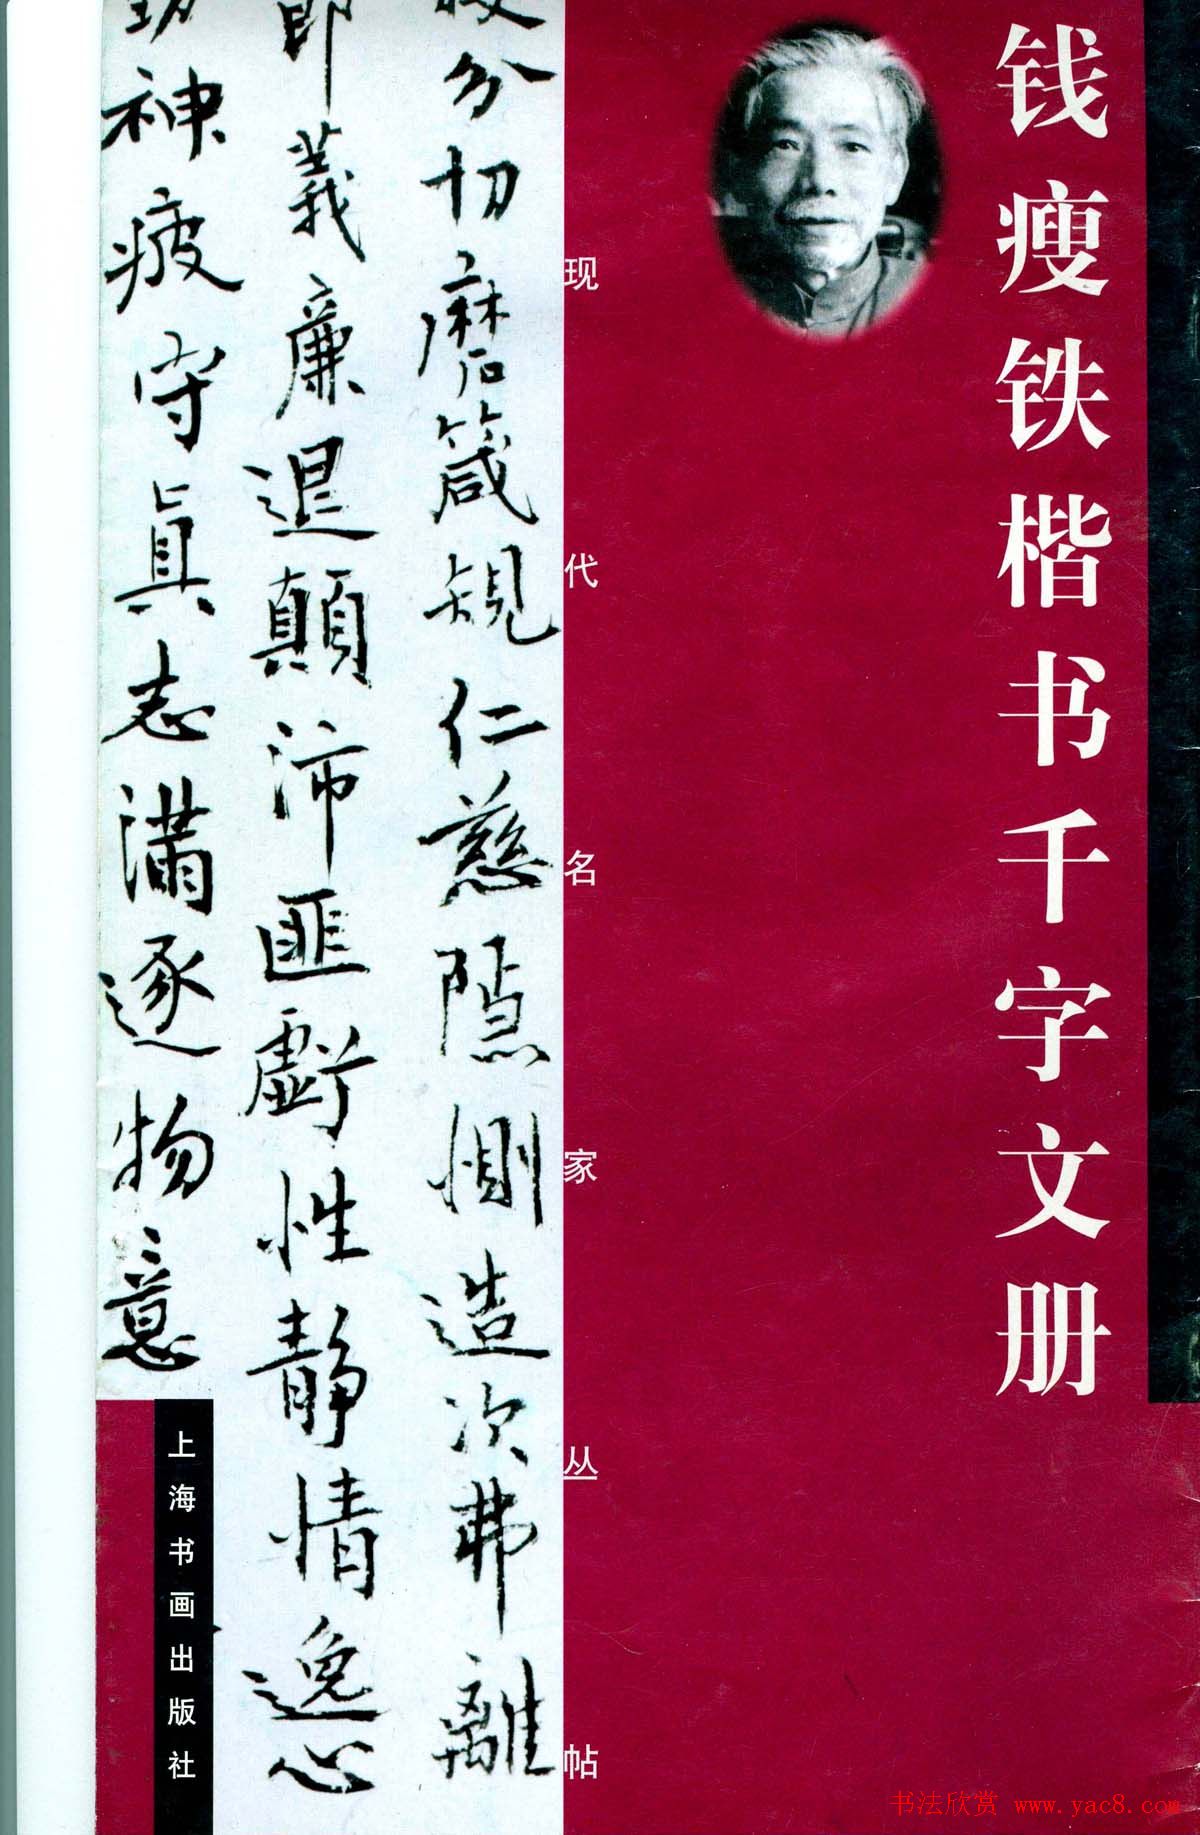 钱瘦铁楷书千字文册
现代名家丛帖
分切磨箴規仁慈隱惻造次弗離
義廉退顛沛匪虧性静情逸心
神疲守真志滿逐物意
上海书画出版社
书法欣赏 www.yac8.com